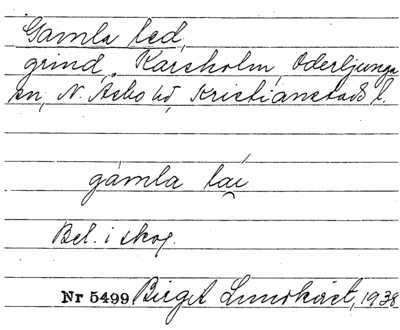 Gamla led,
grind, Karsholm, Oderljunga
sn, N. Åsbo hd, Kristianstads l.
gàmla lai
Bel. i skog.
Nr 5499 Birget Lundkvist, 1938